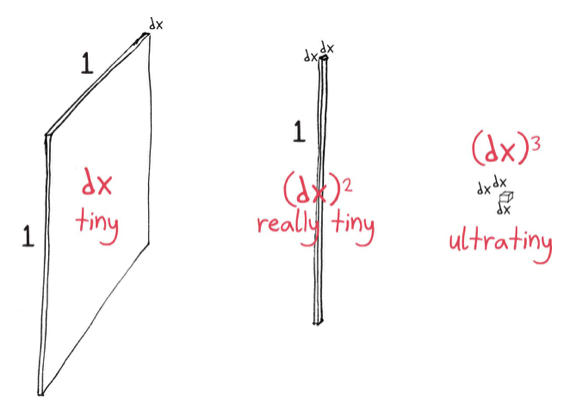 dx
1
dx
tiny
1
dx dx
1
(dx)²
really tiny
(dx)³
dx dx
dx
ultratiny